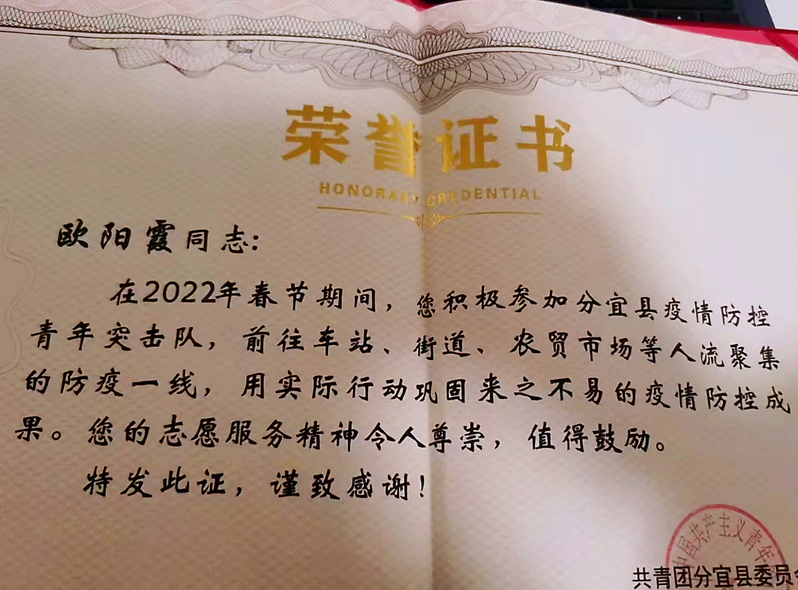 荣誉证书
HONORARY CREDENTIAL
欧阳霞同志:
在2022年春节期间，您积极参加分宜县疫情防控
青年突击队，前往车站、街道、农贸市场等人流聚集
的防疫一线，用实际行动巩固来之不易的疫情防控成
果。您的志愿服务精神令人尊崇，值得鼓励。
特发此证，谨致感谢！
中国共产主义青年
共青团分宜县委员会